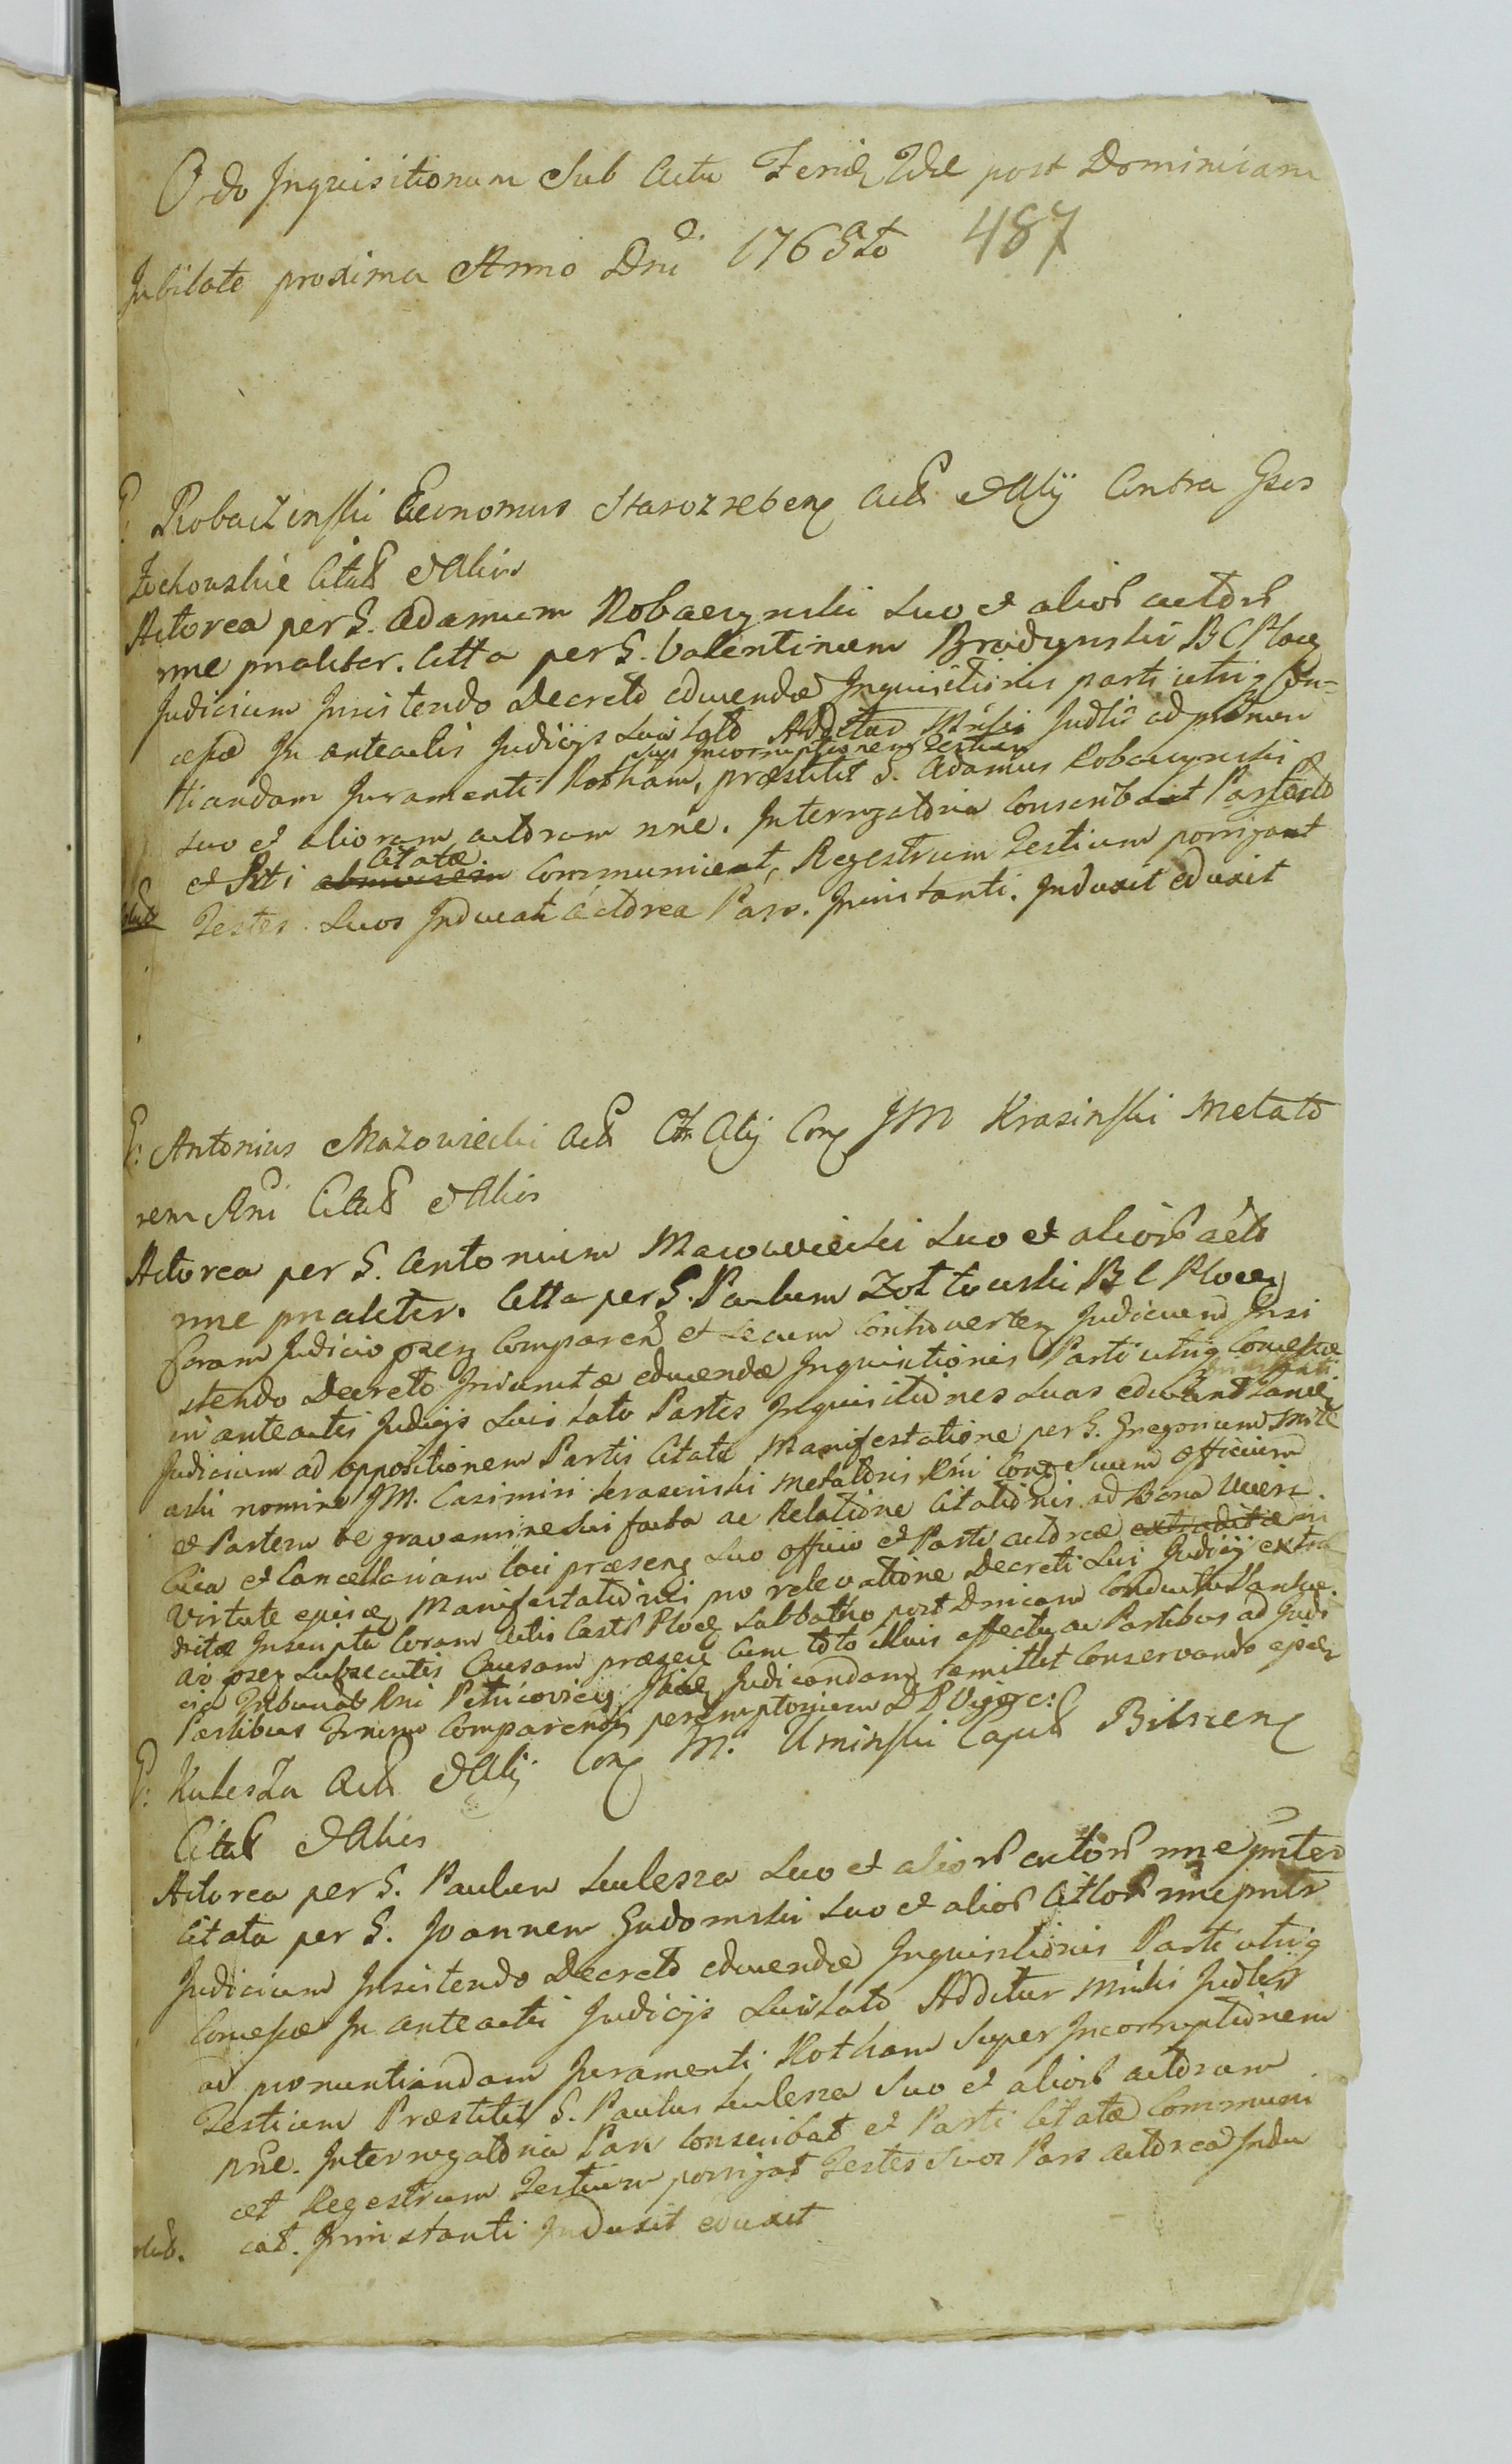 Ordo Inquisitionum Sub Actu Feriæ 2dæ post Dominicam
Jubilate proxima Anno Dni 1765to 487
G: Robaczenski Æconomus Starozreben Act et Alij Contra Gsos
Zochowskie Citat et Alios
Actorea per G. Adamum Robaczynski suo et alior actor
nne pnaliter. Citta per G. Valentinum Brudzynski BC Ploc
Judicium Insistendo Decreto educendæ Inquisitionis parti utriq Con=
cessæ In anteactis Judicijs suis lato Additur Mrlis Judlis ad pntiun
super Incorruptionem Testium
tiandam Juramenti Rotham, præstitit G. Adamus Robaczynski
suo et aliorum actorum nne. Interrogatoria Conscribat Pars
et Pti Citatæ Communicat, Regestrum Testium porrigat
Testes Suos Inducat Actorea Pars. Ininstanti. Induxit eduxit
G: Antonius Mazowiecki Act Et Alij Con JM Krasinski Metato
rem Rni Citat et Alios
Actorea per G. Antonium Mazowiecki suo et alior acto
nne pnaliter. Citta per G. Paulum Zoltowski BC Ploc
Coram Judicio psen Comparen et secum Controverten Judicium Insi
stendo Decreto Iniunctæ educendæ Inquisitionis Parti utriq Concessæ
in anteactis Judicijs suis lato Partes Inquisitiones suas educant
Judicium ad oppositionem Partis Citatæ Manifestatione per G. Gregorium
nomine JM. Casimiri Krasinski Metatoris Rni Con Suum officium
et Partem de gravamine sui facta ac Relatione Citationis ad Bona
et Cancellariam loci præsen suo officio et Parti actoreæ
Virtute ejusd Manifestationis pro relevatione Decreti sui Judicij extra
ditæ Inscripta Coram Actis Castr Ploc Sabbatho post Dnicam Conductus Paschæ
ac psen subsecutis Causam præsen cum toto illius effectu ac Partibus ad Judi
cia Tribunal Rni Petricovien Judicandam remittit Conservando ejusd
Partibus Terminum Comparendi peremptorium D P Vigore:
G: Kulesza Act et Alij Con M. Uminski Capit Bilscen
Citat et Alios
Actorea per G. Paulum Kulesza suo et alior actor nne pnter
Citata per G. Joannem Gadomski suo et alior Cittor nne pntr
Judicium Insistendo Decreto educendæ Inquisitionis Parti utriq
Concessæ In anteactis Judicijs suis lato Additur Mrlis Judlis
ad pronuntiandam Juramenti Rotham Super Incorruptionem
Testium Præstitit G. Paulus Kulesza suo et alior actorum
nne. Interrogatoria Pars Conscribat et Parti Citatæ Communi
cet Regestrum Testium porrigat Testes Suos Pars actorea Indu
cat. Ininstanti Induxit eduxit